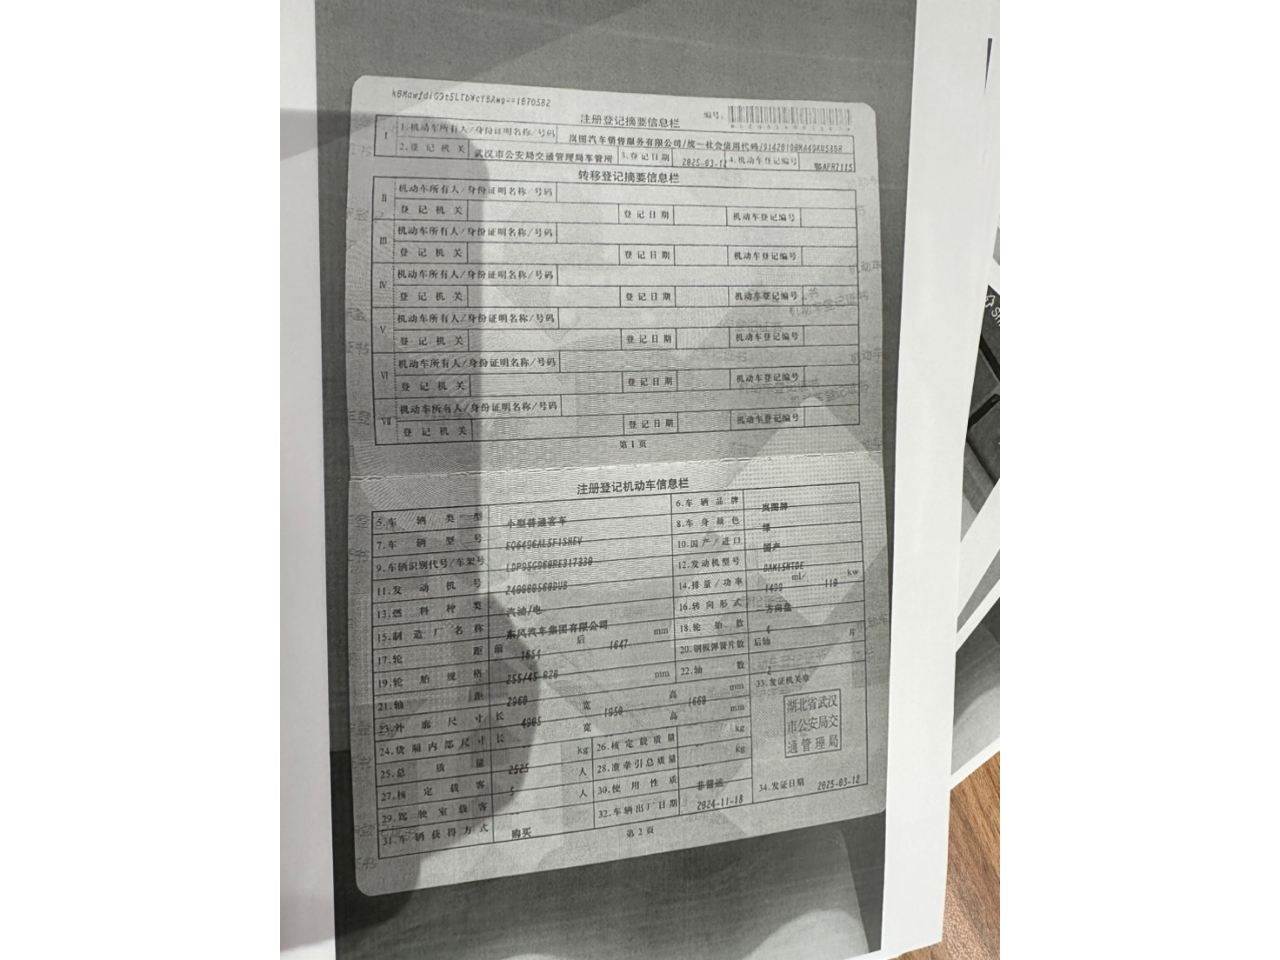 k8McwfdiG9t5LTbWcY8Awg==1870582
注册登记摘要信息栏
编号:
I
1.机动车所有人/身份证明名称/号码
岚图汽车销售服务有限公司/统一社会信用代码/
2.登记机关
武汉市公安局交通管理局车管所
3.登记日期
2025-03-12
4.机动车登记编号
鄂AFR7115
转移登记摘要信息栏
II
机动车所有人/身份证明名称/号码
登记机关 登记日期 机动车登记编号
III
机动车所有人/身份证明名称/号码
登记机关 登记日期 机动车登记编号
IV
机动车所有人/身份证明名称/号码
登记机关 登记日期 机动车登记编号
V
机动车所有人/身份证明名称/号码
登记机关 登记日期 机动车登记编号
VI
机动车所有人/身份证明名称/号码
登记机关 登记日期 机动车登记编号
VII
机动车所有人/身份证明名称/号码
登记机关 登记日期 机动车登记编号
第1页
注册登记机动车信息栏
5.车辆类型 小型普通客车 6.车辆品牌 岚图牌
7.车辆型号 8.车身颜色 绿
9.车辆识别代号/车架号 10.国产/进口 国产
11.发动机号 12.发动机型号
13.燃料种类 汽油/电 14.排量/功率 1499 ml/ 110 kw
15.制造厂名称 东风汽车集团有限公司 16.转向形式 方向盘
17.轮距 前 1654 后 1647 mm 18.轮胎数 4
19.轮胎规格 255/45 R20 20.钢板弹簧片数 后轴 片
21.轴距 2960 mm 22.轴数 2
23.外廓尺寸 长 4905 宽 1950 高 1660 mm
24.货厢内部尺寸 长 宽 高 mm
25.总质量 2525 kg 26.核定载质量 kg
27.核定载客 5 人 28.准牵引总质量 kg
29.驾驶室载客 人 30.使用性质 非营运
31.车辆获得方式 购买 32.车辆出厂日期 2024-11-18
33.发证机关章
湖北省武汉
市公安局交
通管理局
34.发证日期 2025-03-12
第2页